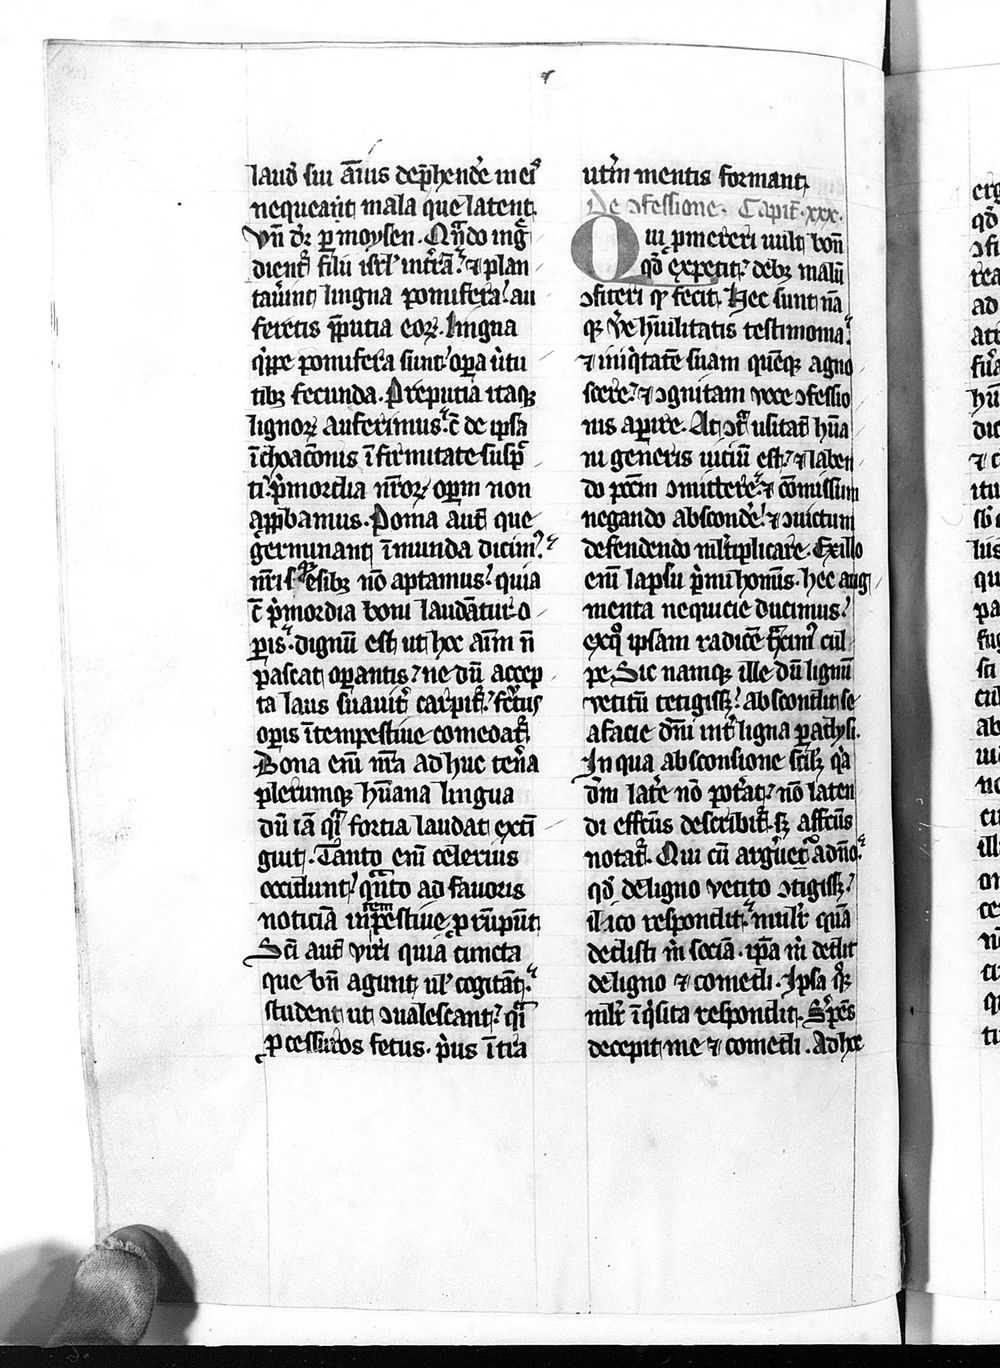 laud̄ sui āīus dep̄hend̄e mei᷒
nequeant mala que latent.
Vn̄ dr̄ ꝑ moysen. Qn̄do inḡ
dient᷒ filii isrl' int̄ra. ⁊ plan
tau̅int ligna pomifera. au
feretis p̄putia eoꝝ. Ligna
q̇ppe pomifera sunt. oꝑa u̇tu
tibꝫ fecunda. Preputia itaqꝫ
lignoꝝ auferimus. c̄ de ipsa
īchoac̄onis īfirmitate susp̄
ti. ṗmordia nr̄oꝝ oꝑm non
aꝓbamus. Poma aut̄ que
germinant īmunda dicim᷒.
nr̄is esibꝫ nō aptamus. quia
c̄ ṗmordia boni laudāt̄ur o
ꝑis. dignū est ut hoc aīm n̄
pascat oꝑantis. ne dū accep
ta laus suauit̄ carpit̄. fet᷒us
oꝑis ītempestiue comedat̄.
Bona enī nr̄a adhuc ten̄a
plerumqꝫ hūana lingua
dū iā q̄i fortia laudat exti̅
guit. Tanto enī celerius
occidunt. qn̄to ad fauoris
noticiā intempestiue ꝓrūpūt.
Sc̄i aut̄ viri quia cuncta
que bn̄ agunt ul' cogitāt.
student ut ꝯualescant. q̄i
ꝓcessuros fetus. ṗus ītra
utīm mentis formant.
De ꝯfessione. Capit̄. xxx.
Qui ꝓmereri uult bon̄
qd̄ expetit. debꝫ malū
ꝯfiteri qd̄ fecit. Hec sunt nā
qꝫ ve̅ hūilitatis testimonia.
⁊ iniq̇tatē suam quēqꝫ agno
scere. ⁊ ꝯgnitam voce ꝯfessio
nis aꝑire. At ꝯt̄ usitat̄ hūa
ni generis uiciū est. ⁊ laben
do pcc̄m ꝯmittere. ⁊ cōmissum
negando abscond̄e. ⁊ ꝯuictum
defendendo ml'tiplicare. Ex illo
enī lapsu ṗmi hominis. hec aug
menta nequicie ducimus.
ex q᷒ ipsam radicē t̄cim᷒ cul
pe. Sic namqꝫ ille dū lignū
vetitū tetigissꝫ. abscondit se
a facie dn̄i int̄ ligna ꝑadysi.
In qua absconsione scilꝫ q̇a
dn̄m lat̄e nō pot̄at. nō laten
di effcūs describit̄. sꝫ affcūs
notat̄. Qui cū arguet̄ a dn̄o.
qd̄ de ligno vetito ꝯtigissꝫ.
ilico respondit. mul'r quā
dedisti m̄ sociā. ip̄a m̄ dedit
de ligno ⁊ comedi. Ipsa qͦꝫ
ml'r īq̇sita respondit. Sꝑēs
decepit me ⁊ comedi. Ad hoc